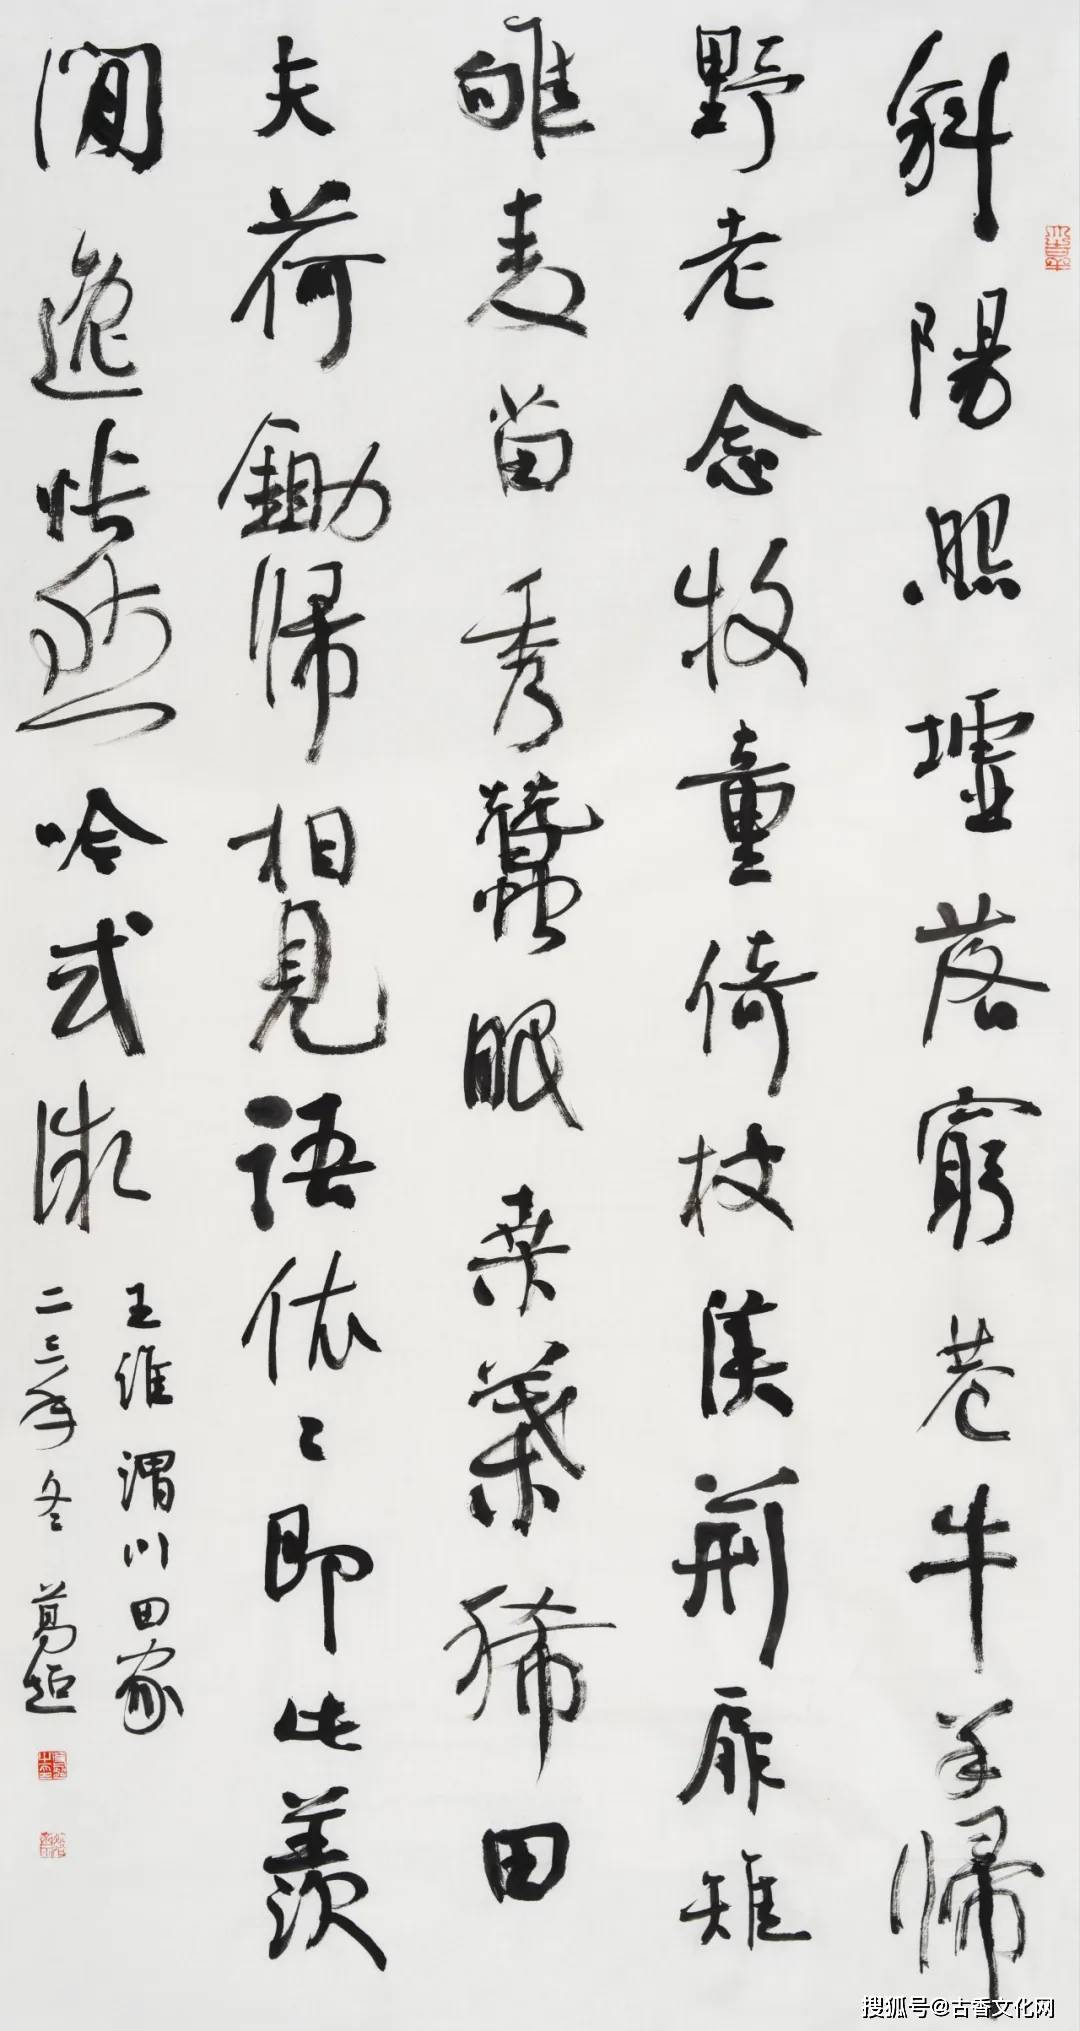 斜陽照墟落窮巷牛羊歸
野老念牧童倚杖候荊扉雉
雊麦苗秀蠶眠桑葉稀田
夫荷鋤歸相見語依〻即此羨
閒逸悵然吟式微
王維渭川田家
二三年冬 葛
搜狐号@古香文化网